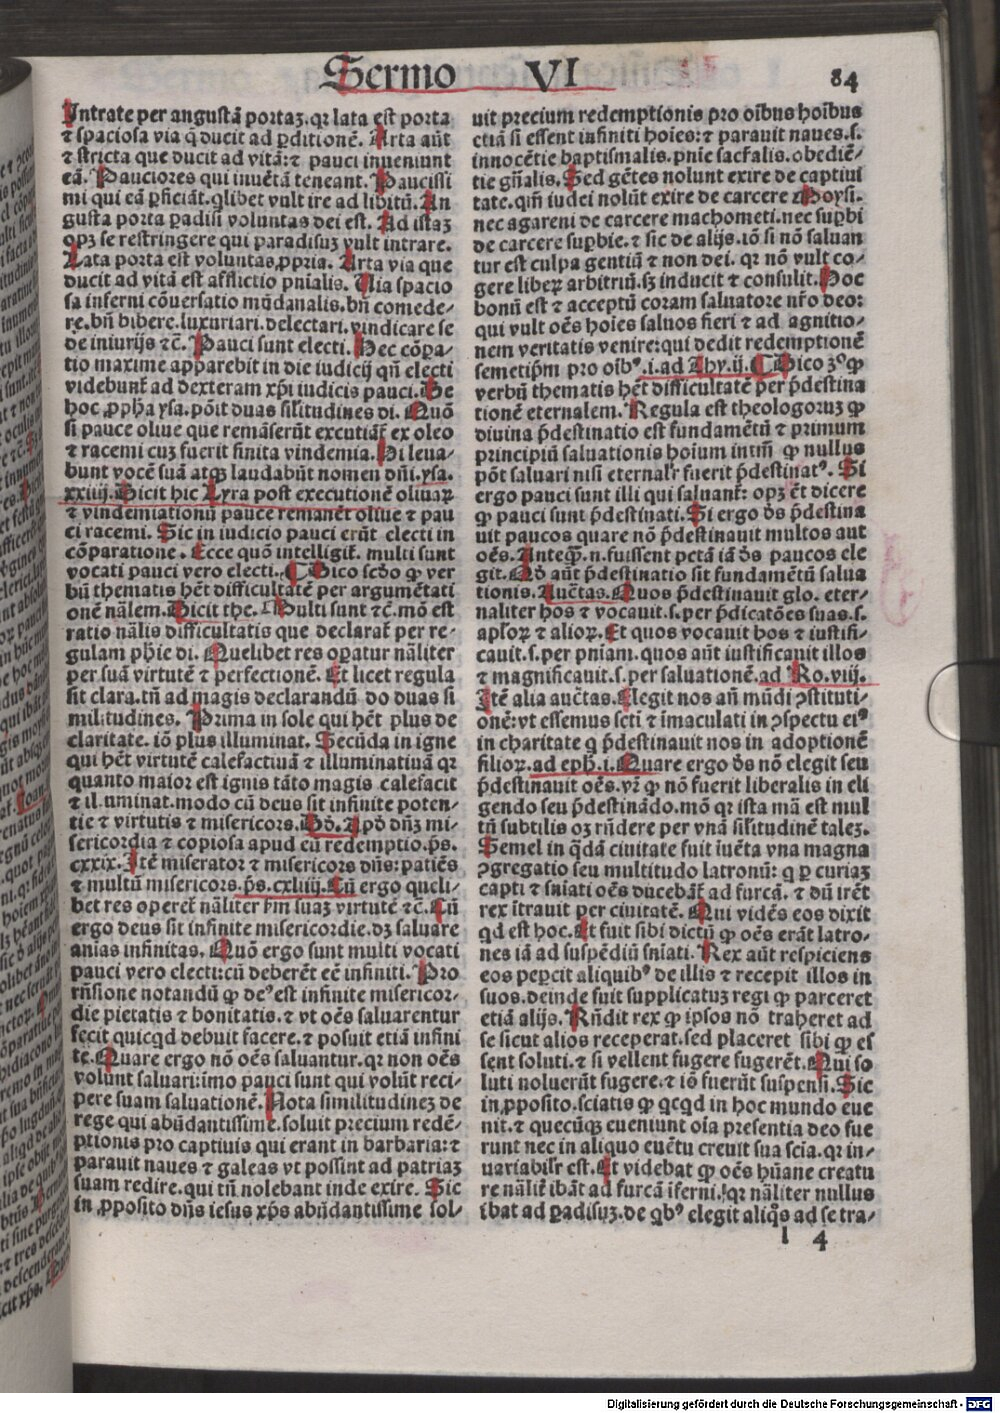 Sermo VI 84
Intrate per angustã portaȝ. qꝛ lata est porta
⁊ spaciosa via q̃ ducit ad ꝑditionẽ. Arta aũt
⁊ stricta que ducit ad vitã: ⁊ pauci inueniunt
eã. Pauciores qui inuẽtã teneant. Paucissi
mi qui eã ꝑficiãt. qͥlibet vult ire ad libitũ. An
gusta porta ꝑadisi voluntas dei est. Ad istaȝ
opȝ se restringere qui paradisuȝ vult intrare.
Lata porta est voluntas ꝓpria. Arta via que
ducit ad vitã est afflictio pñialis. Uia spacio
sa inferni cõuersatio mũdanalis. bñ comede⸗
re. bñ bibere. luxuriari. delectari. vindicare se
de iniurijs ⁊c̃. Pauci sunt electi. Hec cõꝑa⸗
tio maxime apparebit in die iudicij qñ electi
videbunt̃ ad dexteram xp̃i iudicis pauci. De
hoc ꝓpha ysa. põit duas sil̃itudines di. Quõ
si pauce oliue que remãserũt excutiãt̃ ex oleo
⁊ racemi cuȝ fuerit finita vindemia. Hi leua⸗
bunt vocẽ suã atqȝ laudabũt nomen dñi. ysa.
xxiiij. Dicit hic Lyra post executionẽ oliuaꝝ
⁊ vindemiationũ pauce remanẽt oliue ⁊ pau
ci racemi. Sic in iudicio pauci erũt electi in
cõparatione. Ecce quõ intelligit̃. multi sunt
vocati pauci vero electi. ¶ Dico scd̃o ꝙ ver
bũ thematis hẽt difficultatẽ per argumẽtati
onẽ nãlem. Dicit the. Multi sunt ⁊c̃. mõ est
ratio nãlis difficultatis que declarat̃ per re⸗
gulam phi̅e di. Quelibet res oꝑatur nãliter
per suã virtutẽ ⁊ perfectionẽ. Et licet regula
sit clara. tñ ad magis declarandũ do duas si
militudines. Prima in sole qui hẽt plus de
claritate. iõ plus illuminat. Secũda in igne
qui hẽt virtutẽ calefactiuã ⁊ illuminatiuã qꝛ
quanto maior est ignis tãto magis calefacit
⁊ illuminat. modo cũ deus sit infinite poten⸗
tie ⁊ virtutis ⁊ misericors. Apd̃ dñȝ mi⸗
sericordia ⁊ copiosa apud eũ redemptio. ps̃.
cxxix. Itẽ miserator ⁊ misericors dñs: patiẽs
⁊ multũ misericors. ps̃. cxliiij. Cũ ergo queli⸗
bet res operet̃ nãliter fm̃ suaȝ virtutẽ ⁊c̃. Cũ
ergo deus sit infinite misericordie. dȝ saluare
aĩas infinitas. Quõ ergo sunt multi vocati
pauci vero electi: cũ deberẽt eẽ infiniti. Pro
rñsione notandũ ꝙ deꝰ est infinite misericor⸗
die pietatis ⁊ bonitatis. ⁊ vt oẽs saluarentur
fecit quicqd̃ debuit facere. ⁊ posuit etiã infini
te. Quare ergo nõ oẽs saluantur. qꝛ non oẽs
volunt saluari: imo pauci sunt qui volũt reci⸗
pere suam saluationẽ. Nota similitudineȝ de
rege qui abũdantissime. soluit precium redẽ⸗
ptionis pro captiuis qui erant in barbaria: ⁊
parauit naues ⁊ galeas vt possint ad patriaȝ
suam redire. qui tñ nolebant inde exire. Sic
in ꝓposito dñs iesus xp̃s abũdantissime sol⸗
uit precium redemptionis pro oĩbus hoĩbus
etiã si essent infiniti hoĩes: ⁊ parauit naues. s.
innocẽtie baptismalis. pñie sacr̃alis. obediẽ⸗
tie gñalis. Sed gẽtes nolunt exire de captiui
tate. qm̃ iudei nolũt exire de carcere Moysi.
nec agareni de carcere machometi. nec suꝑbi
de carcere suꝑbie. ⁊ sic de alijs. iõ si nõ saluan
tur est culpa gentiũ ⁊ non dei. qꝛ nõ vult co⸗
gere liberꝝ arbitriũ. sȝ inducit ⁊ consulit. Hoc
bonũ est ⁊ acceptũ coram saluatore nr̃o deo:
qui vult oẽs hoĩes saluos fieri ⁊ ad agnitio⸗
nem veritatis venire: qui dedit redemptionẽ
semetip̃m pro oĩbꝰ. .i. ad Thy. ij. ¶ Dico 3º ꝙ
verbũ thematis hẽt difficultatẽ per p̃destina
tionẽ eternalem. Regula est theologoruȝ ꝙ
diuina p̃destinatio est fundamẽtũ ⁊ primum
principiũ saluationis hoĩum intm̃ ꝙ nullus
põt saluari nisi eternalr̃ fuerit p̃destinatꝰ. Si
ergo pauci sunt illi qui saluant̃: opȝ ẽt dicere
ꝙ pauci sunt p̃destinati. Si ergo ds̃ p̃destina
uit paucos quare nõ p̃destinauit multos aut
oẽs. Anteqȝ. n. fuissent petã iã ds̃ paucos ele
git. Qd̃ aũt p̃destinatio sit fundamẽtũ salua
tionis. Auc̃tas. Quos p̃destinauit glo. eter⸗
naliter hos ⁊ vocauit. s. per p̃dicatões suas. s.
apl̃oꝝ ⁊ alioꝝ. Et quos vocauit hos ⁊ iustifi⸗
cauit. s. per pñiam. quos aũt iustificauit illos
⁊ magnificauit. s. per saluationẽ. ad Ro. viij.
Itẽ alia auc̃tas. Elegit nos añ mũdi ꝯstituti⸗
onẽ: vt essemus scti ⁊ ĩmaculati in ꝯspectu eiꝰ
in charitate q p̃destinauit nos in adoptionẽ
filioꝝ. ad eph. i. Quare ergo ds̃ nõ elegit seu
p̃destinauit oẽs. vꝛ̃ ꝙ nõ fuerit liberalis in eli
gendo seu p̃destinãdo. mõ qꝛ ista mã est mul
tũ subtilis oȝ rñdere per vnã sil̃itudinẽ taleȝ.
Semel in qͣdã ciuitate fuit ĩuẽta vna magna
ꝯgregatio seu multitudo latronũ: q ꝑ curiaȝ
capti ⁊ sniati oẽs ducebãt̃ ad furcã. ⁊ dũ irẽt
rex ĩtrauit per ciuitatẽ. Qui vidẽs eos dixit
qd̃ est hoc. Et fuit sibi dictũ ꝙ oẽs erãt latro⸗
nes iã ad suspẽdiũ sniati. Rex aũt respiciens
eos peꝑcit aliquibꝰ de illis ⁊ recepit illos in
suos. deinde fuit supplicatuȝ regi ꝙ parceret
etiã alijs. Rñdit rex ꝙ ipsos nõ traheret ad
se sicut alios receperat. sed placeret sibi ꝙ es
sent soluti. ⁊ si vellent fugere fugerẽt. Qui so
luti noluerũt fugere. ⁊ iõ fuerũt suspensi. Sic
in ꝓposito. sciatis ꝙ qͥcqd̃ in hoc mundo eue
nit. ⁊ quecũqȝ eueniunt oĩa presentia deo fue
runt nec in aliquo euẽtu creuit sua scĩa. qꝛ in⸗
uariabilr̃ est. Et videbat ꝙ oẽs hũane creatu
re nãlit̃ ibãt ad furcã ĩferni. qꝛ nãliter nullus
ibat ad ꝑadisuȝ. de qͥbꝰ elegit aliqͦs ad se tra⸗
l 4
Digitalisierung gefördert durch die Deutsche Forschungsgemeinschaft - DFG